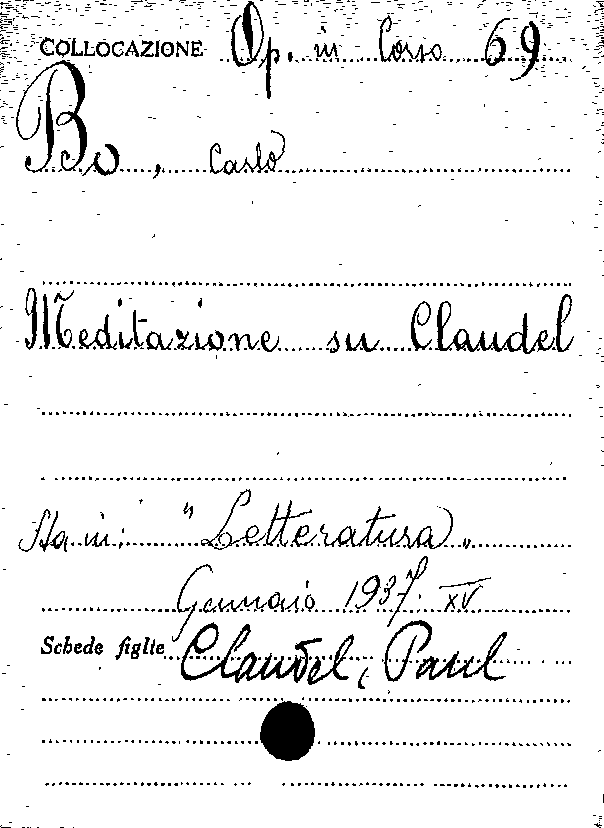 COLLOCAZIONE Op. in Corso 69
Bo, Carlo
Meditazione su Claudel
Sta in: "Letteratura"
Gennaio 1937. XV
Schede figlie Claudel, Paul